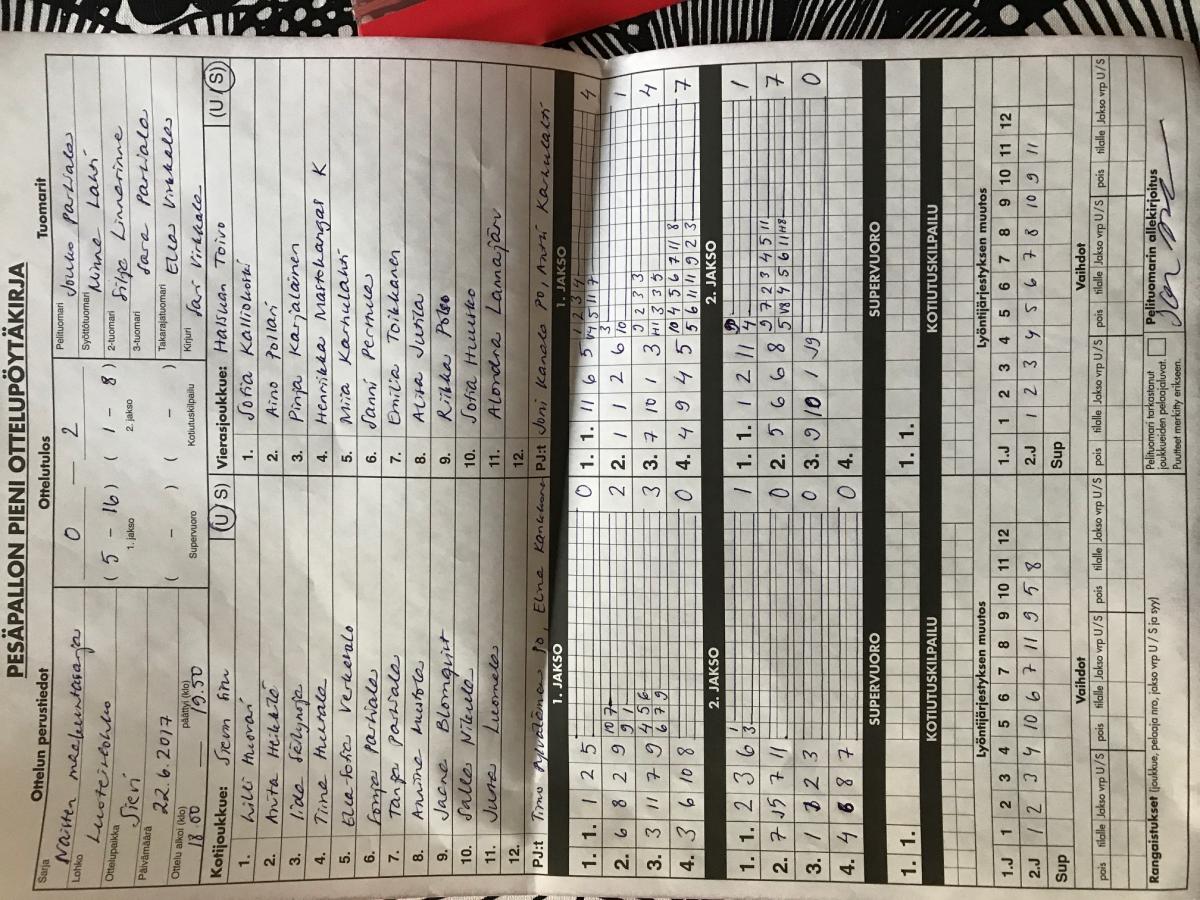 PESÄPALLON PIENI OTTELUPÖYTÄKIRJA
Ottelun perustiedot
Ottelutulos
Tuomarit
Sarja
Naisten maakuntasarja
Lohko
Ottelupaikka
Sievi
Päivämäärä
22.6.2017
Ottelu alkoi (klo)
18 00
päättyi (klo)
19.50
0 — 2
( 5 – 16 ) ( 1 – 8 )
1. jakso 2. jakso
( – ) ( – )
Supervuoro Kotiutuskilpailu
Pelituomari Jouko Parhiala
Syöttötuomari Minna Lahti
2-tuomari Silja Linnarinne
3-tuomari Sara Parhiala
Takarajatuomari Elias Virkkala
Kirjuri Sari Virkkala
Kotijoukkue: Sievin Sisu (U S)
1. Lilli Huovari
2. Anita Heikkilä
3. Iida Säilynoja
4. Tiina Huusla
5. Ella-Sofia Verkasalo
6. Sonja Parhiala
7. Tanja Parhiala
8. Anniina Mustola
9. Jaana Blomqvist
10. Salla Nikula
11. Jutta Luomala
12.
PJ:t Timo Syväoja PO, Elna Kankkunen
Vierasjoukkue: Halsuan Toivo (U S)
1. Sofia Kalliokoski
2. Aino Pollari
3. Pinja Karjalainen
4. Henriikka Mastokangas K
5. Miia Karhulahti
6. Sanni Permula
7. Emilia Toikkanen
8. Alisa Jutila
9. Riikka Polso
10. Sofia Huusko
11. Alondra Lannajärvi
12.
PJ:t Joni Kanala PO, Anssi Karhulahti
1. JAKSO
1. 1. 1 2 5 0
2. 6 8 2 9 10 7 9 1 2
3. 3 11 7 9 4 5 6 6 7 9 3
4. 3 6 10 8 0
2. JAKSO
1. 1. 2 3 6 1 3 1
2. 7 5 7 11 0
3. 1 2 3 0
4. 4 6 8 7 0
SUPERVUORO
1. 1.
KOTIUTUSKILPAILU
1. JAKSO
1. 1. 11 6 5 1 2 3 4 4
2. 1 1 2 6 3 10 1
3. 7 10 1 3 9 2 3 3 4
4. 4 9 4 5 10 4 5 6 7 11 8 5 6 11 11 9 2 3 7
2. JAKSO
1. 1. 1 2 11 4 9 1
2. 5 6 6 8 9 7 2 3 4 5 11 7
3. 9 10 1 9 0
4.
SUPERVUORO
1. 1.
KOTIUTUSKILPAILU
Lyöntijärjestyksen muutos
1.J 1 2 3 4 5 6 7 8 9 10 11 12
2.J 1 2 3 4 10 6 7 11 9 5 8
Sup
Vaihdot
pois tilalle Jakso vrp U / S pois tilalle Jakso vrp U / S pois tilalle Jakso vrp U / S
Lyöntijärjestyksen muutos
1.J 1 2 3 4 5 6 7 8 9 10 11 12
2.J 1 2 3 4 5 6 7 8 10 9 11
Sup
Vaihdot
pois tilalle Jakso vrp U / S pois tilalle Jakso vrp U / S pois tilalle Jakso vrp U / S
Rangaistukset (joukkue, pelaaja nro, jakso vrp U / S ja syy)
Pelituomari tarkastanut
joukkueiden pelaajaluvat.
Puutteet merkitty erikseen.
Pelituomarin allekirjoitus